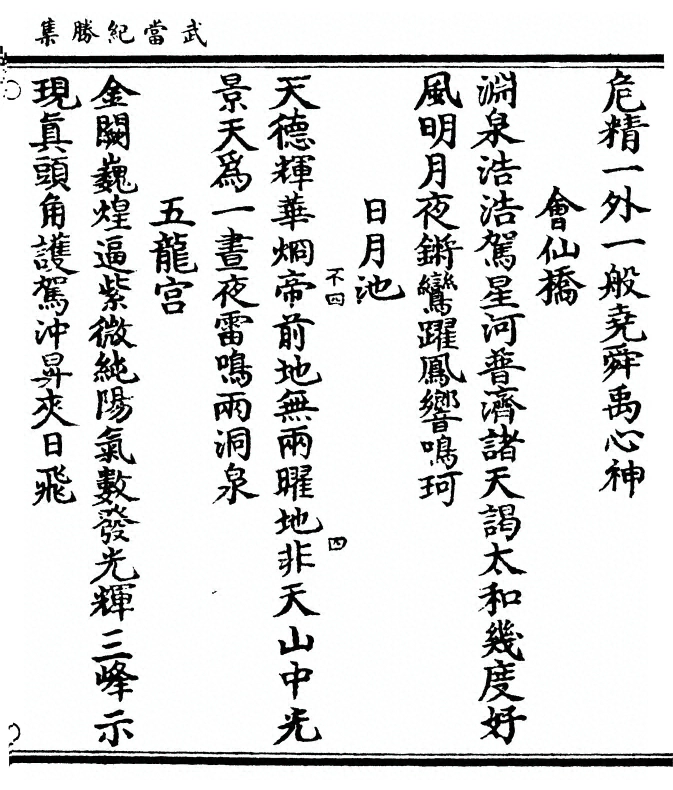 武當紀勝集
危精一外一般堯舜禹心神
會仙橋
淵泉浩浩駕星河普濟諸天謁太和幾度好
風明月夜鏘鸞躍鳳響鳴珂
日月池
不四
四
天德輝華烱帝前地無兩曜地非天山中光
景天爲一晝夜雷鳴兩洞泉
五龍宮
金闕巍煌逼紫微純陽氣數發光輝三峰示
現眞頭角護駕沖昇夾日飛